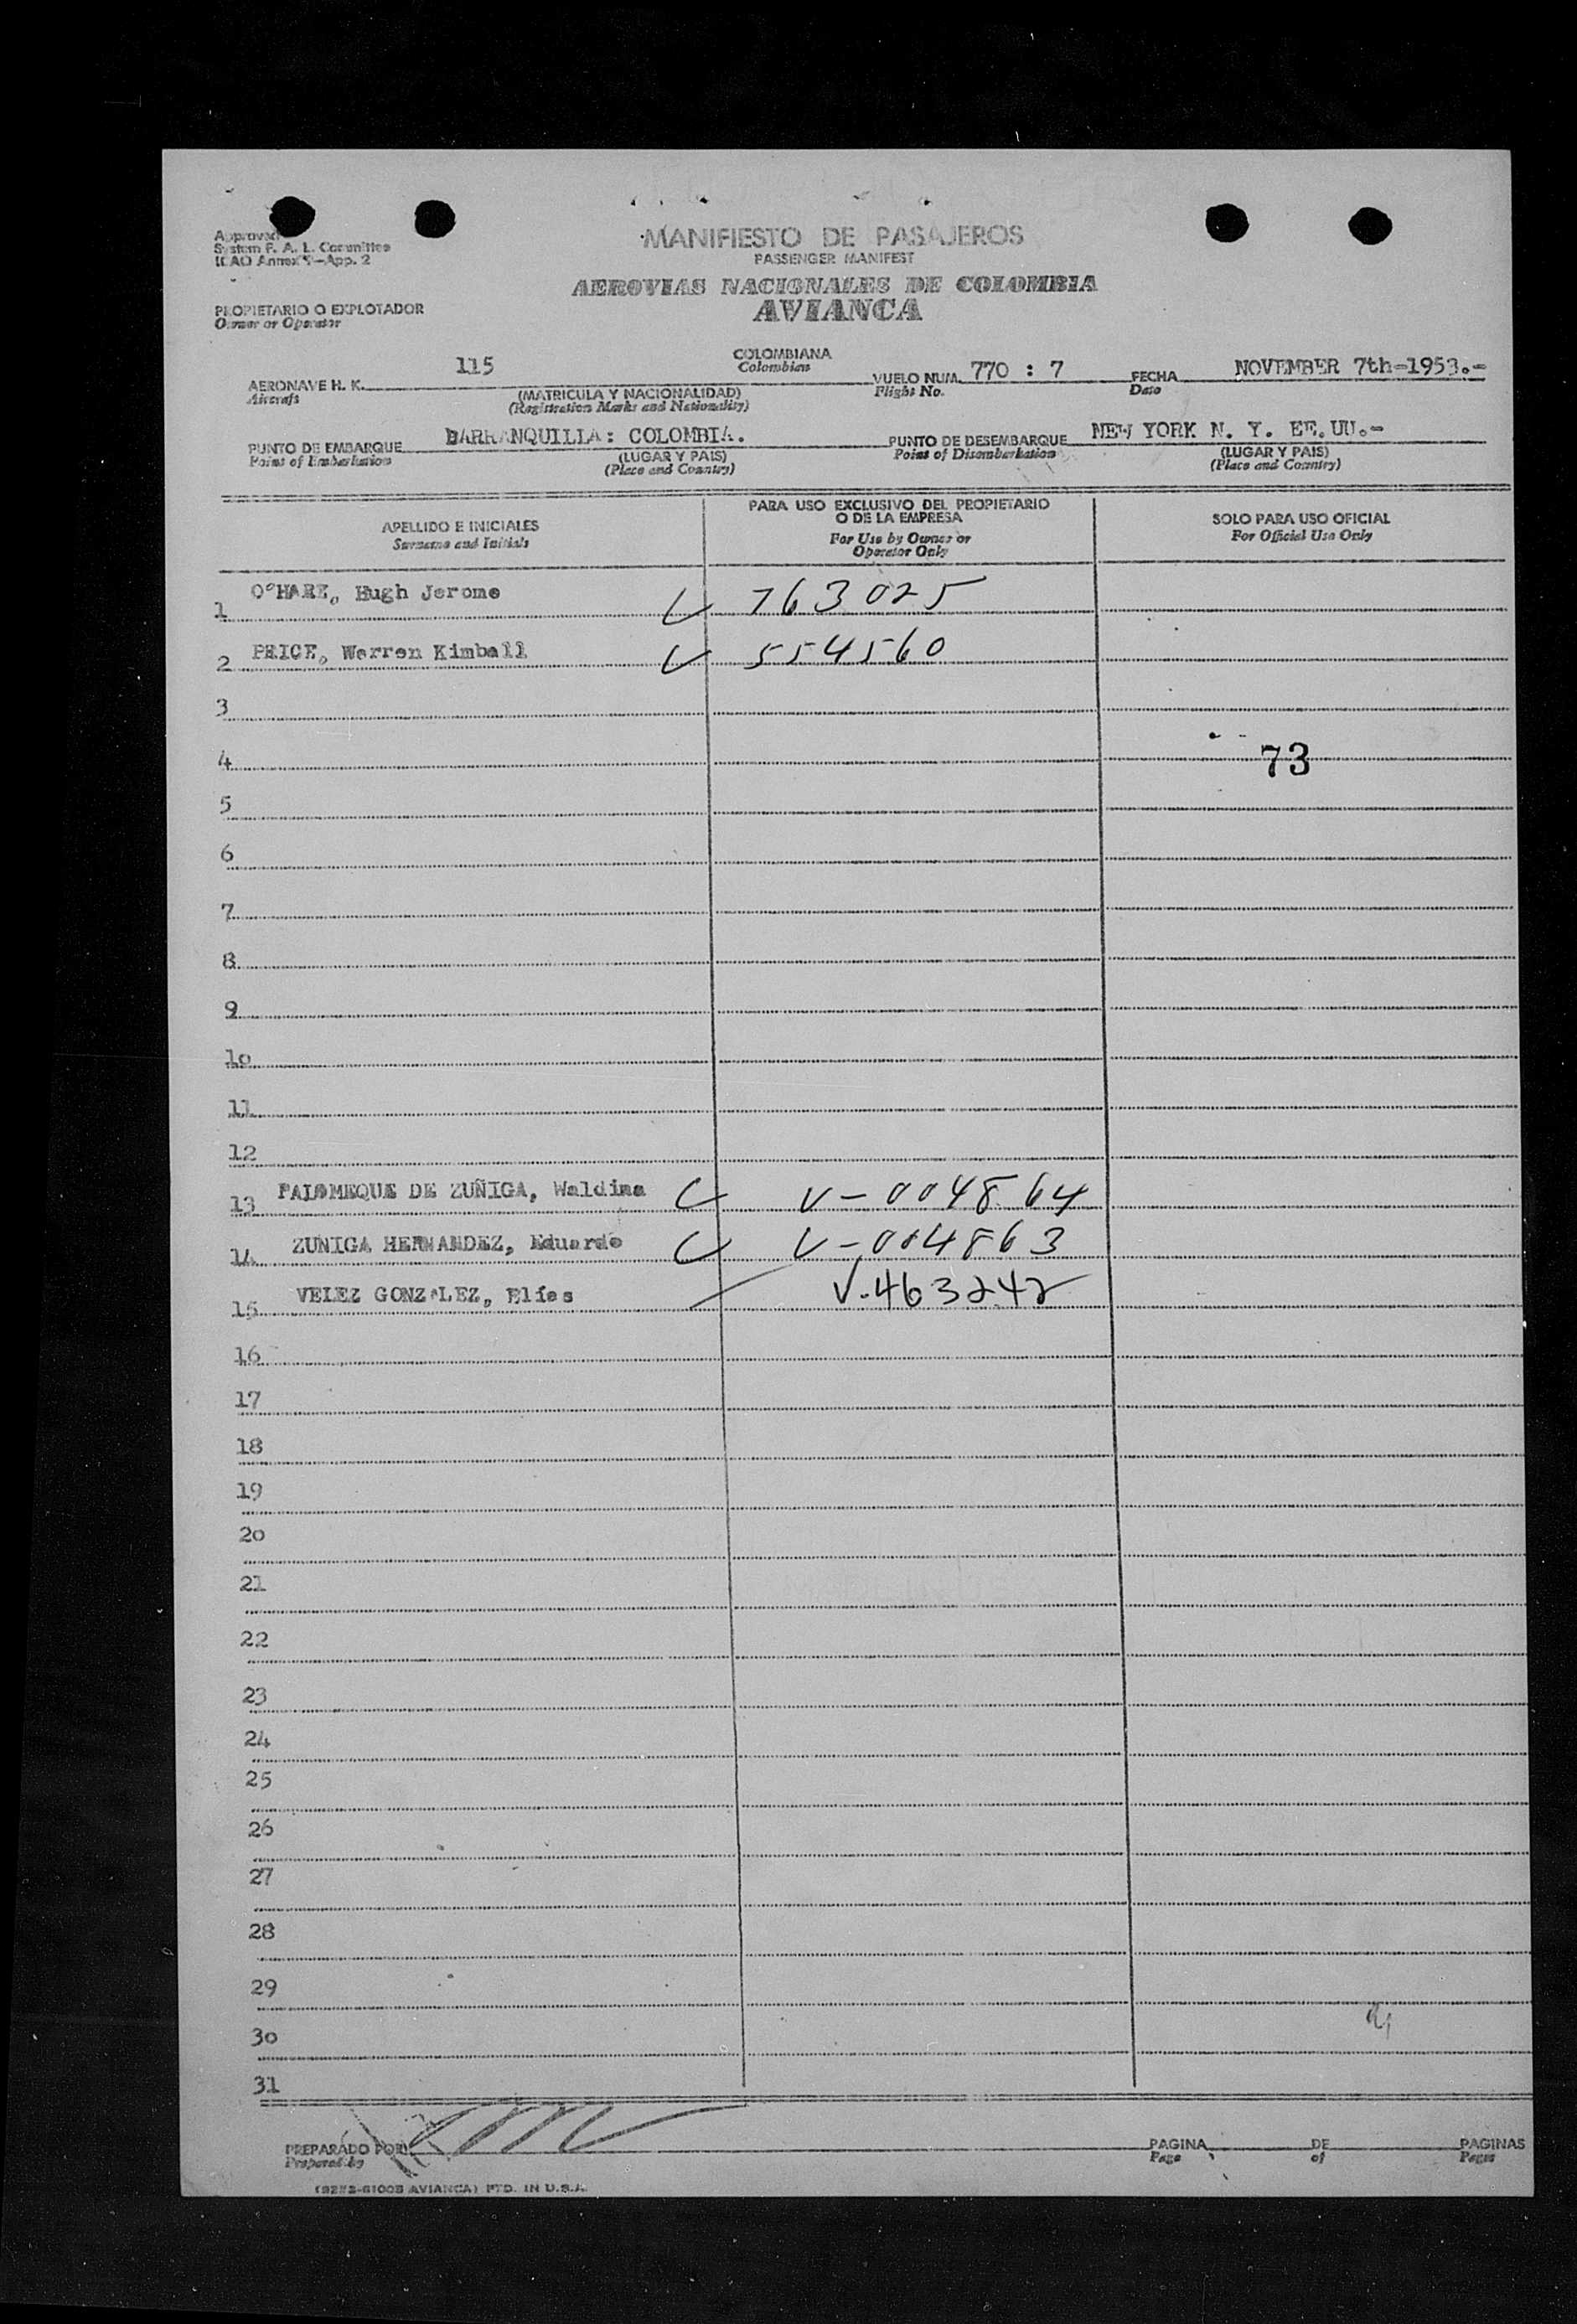 Approved
System F. A. L. Committee
ICAO Annex 9-App. 2
MANIFIESTO DE PASAJEROS
PASSENGER MANIFEST
AEROVIAS NACIONALES DE COLOMBIA
AVIANCA
PROPIETARIO O EXPLOTADOR
Owner or Operator
AERONAVE H. K. 115 COLOMBIANA VUELO NUM. 770 : 7 FECHA NOVEMBER 7th-1953.-
Aircraft Colombian Flight No. Date
(MATRICULA Y NACIONALIDAD)
(Registration Marks and Nationality)
PUNTO DE EMBARQUE BARRANQUILLA: COLOMBIA. PUNTO DE DESEMBARQUE NEW YORK N. Y. EE.UU.-
Point of Embarkation (LUGAR Y PAIS) Point of Disembarkation (LUGAR Y PAIS)
(Place and Country) (Place and Country)
APELLIDO E INICIALES
Surname and Initials
PARA USO EXCLUSIVO DEL PROPIETARIO
O DE LA EMPRESA
For Use by Owner or
Operator Only
SOLO PARA USO OFICIAL
For Official Use Only
1 O'HARE, Hugh Jerome 763025
2 PRICE, Warren Kimball 554560
3
4 73
5
6
7
8
9
10
11
12
13 PALOMEQUE DE ZUÑIGA, Waldina V-004864
14 ZUNIGA HERNANDEZ, Eduardo V-004863
15 VELEZ GONZALEZ, Elías V.463242
16
17
18
19
20
21
22
23
24
25
26
27
28
29
30
31
PREPARADO POR: PAGINA DE PAGINAS
Prepared by Page of Pages
AVIANCA) PTD. IN U.S.A.